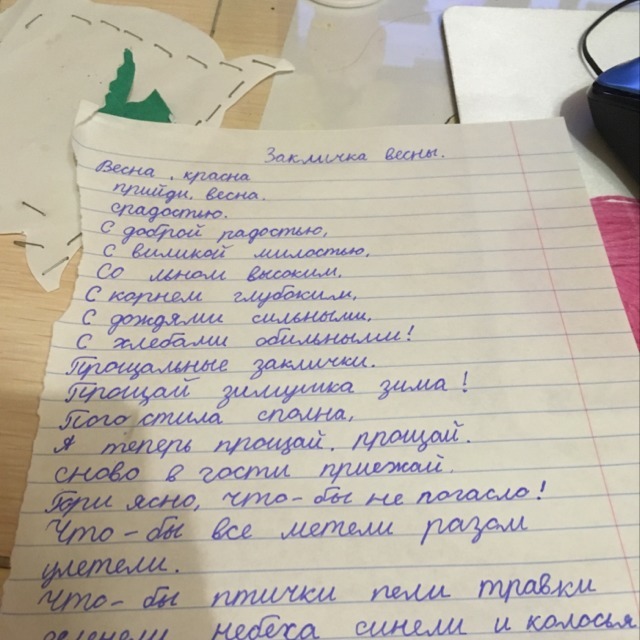 Закличка весны.
Весна, красна
прийди, весна.
срадостью.
С доброй радостью,
С виликой милостью,
Со льном высоким,
С корнем глубоким,
С дождями сильными,
С хлебами обильными!
Прощальные заклички.
Прощай зимушка зима!
Пого стила сполна,
А теперь прощай, прощай.
сново в гости приежай.
Гори ясно, что-бы не погасло!
Что-бы все метели разом
улетели.
Что-бы птички пели травки
зеленели небеха синели и колосья